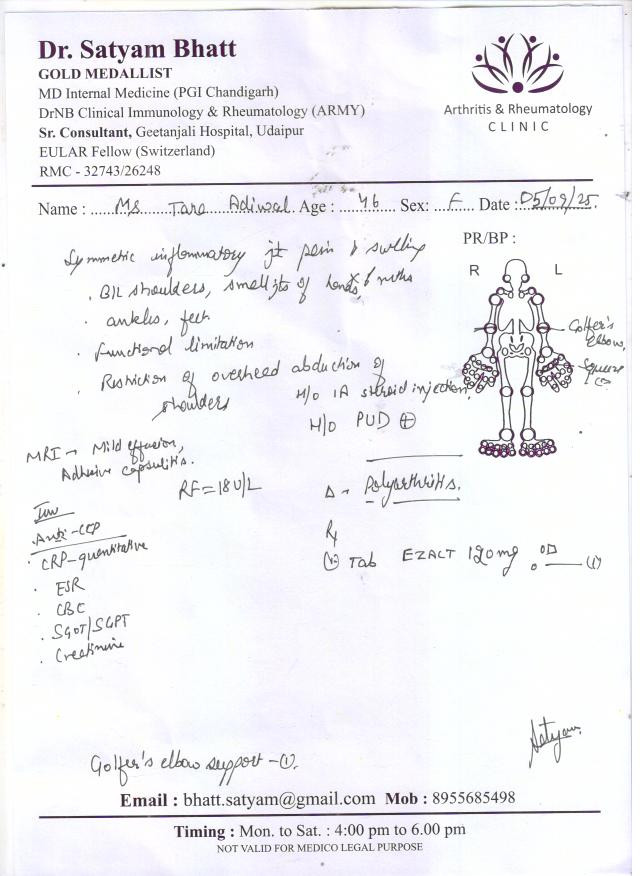 Dr. Satyam Bhatt
GOLD MEDALLIST
MD Internal Medicine (PGI Chandigarh)
DrNB Clinical Immunology & Rheumatology (ARMY)
Sr. Consultant, Geetanjali Hospital, Udaipur
EULAR Fellow (Switzerland)
RMC - 32743/26248
Arthritis & Rheumatology
CLINIC
Name : Ms Tara Adiwal Age : 46 Sex: F Date : 05/09/25
Symmetric inflammatory jt pain & swelling
. B/L shoulders, small jts of hands, 6 mths
. ankles, feet
. Functional limitation
. Restriction of overhead abduction of
shoulders
PR/BP :
R L
Golfer's
elbow,
Squeeze
H/O IA steroid injection
H/O PUD ⊕
MRI → Mild effusion,
Adhesive capsulitis.
RF = 18 U/L
Δ → Polyarthritis.
Inv
. Anti-CCP
. CRP-quantitative
. ESR
. CBC
. SGOT/SGPT
. Creatinine
Rx
Tab EZACT 120mg OD (1)
Golfer's elbow support - (1).
Satyam
Email : bhatt.satyam@gmail.com Mob : 8955685498
Timing : Mon. to Sat. : 4:00 pm to 6.00 pm
NOT VALID FOR MEDICO LEGAL PURPOSE